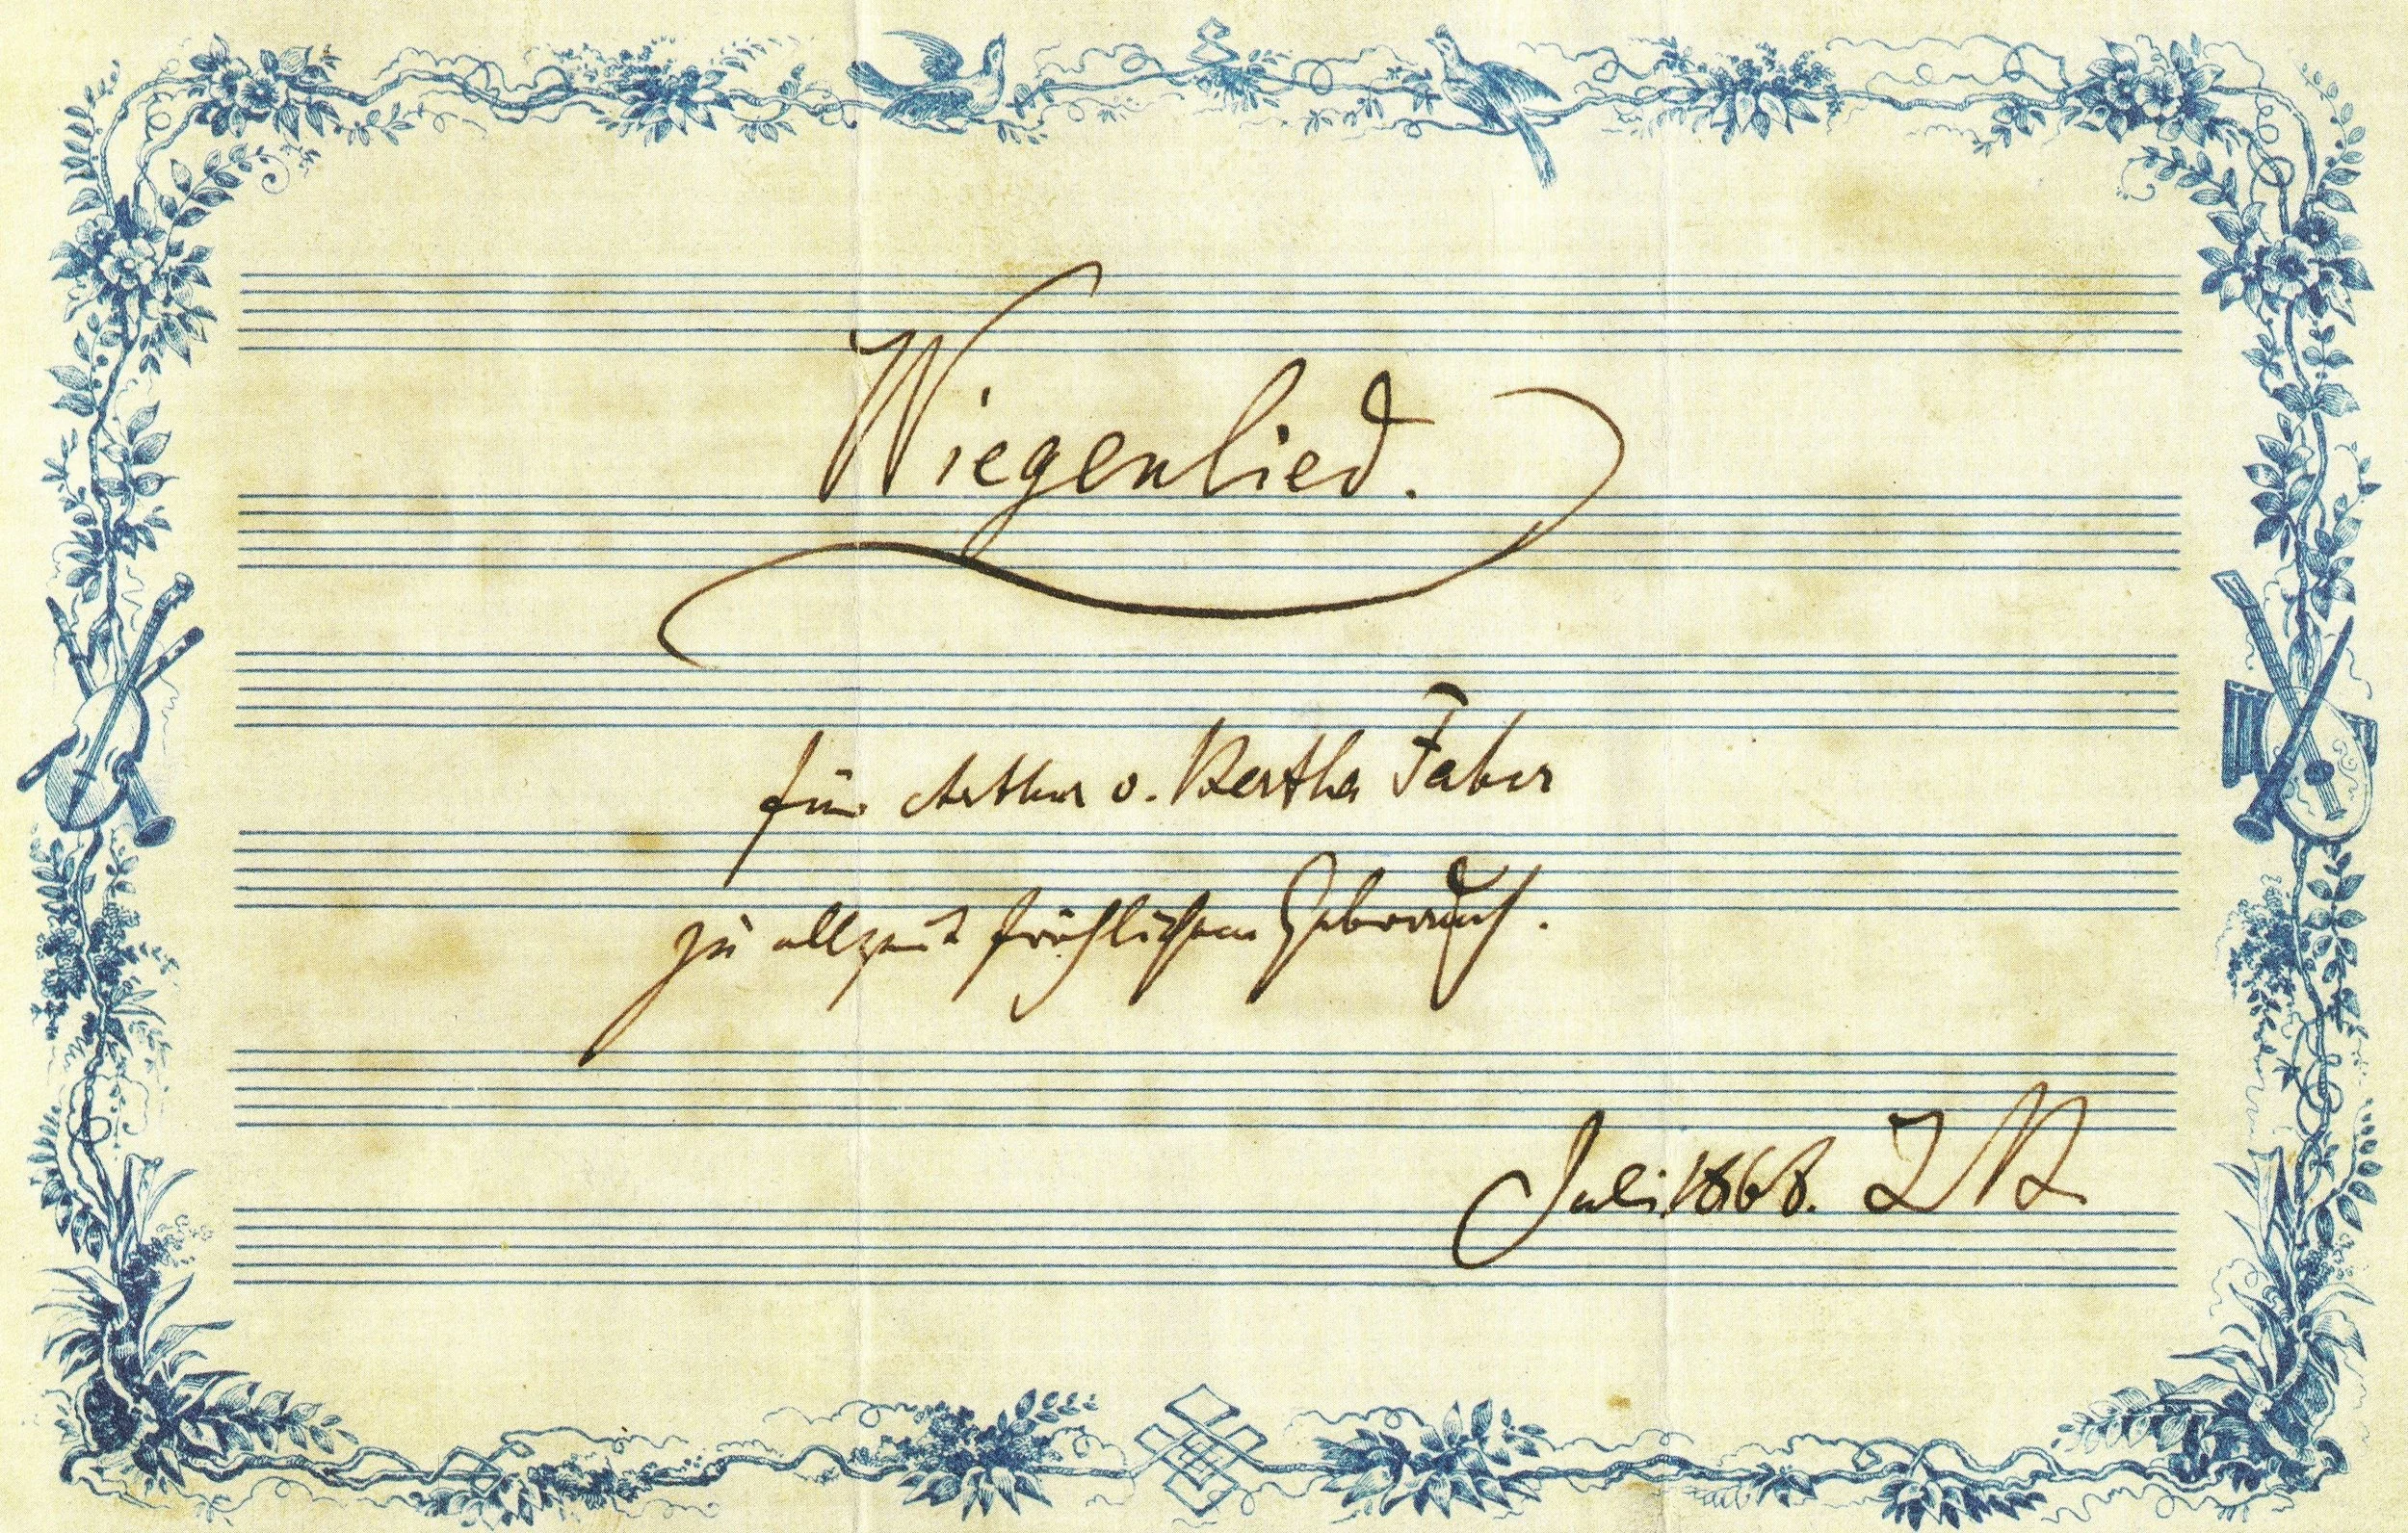 Wiegenlied.
für Arthur u. Bertha Faber
zu allzeit fröhlichem Gebrauch.
Juli 1868. JB